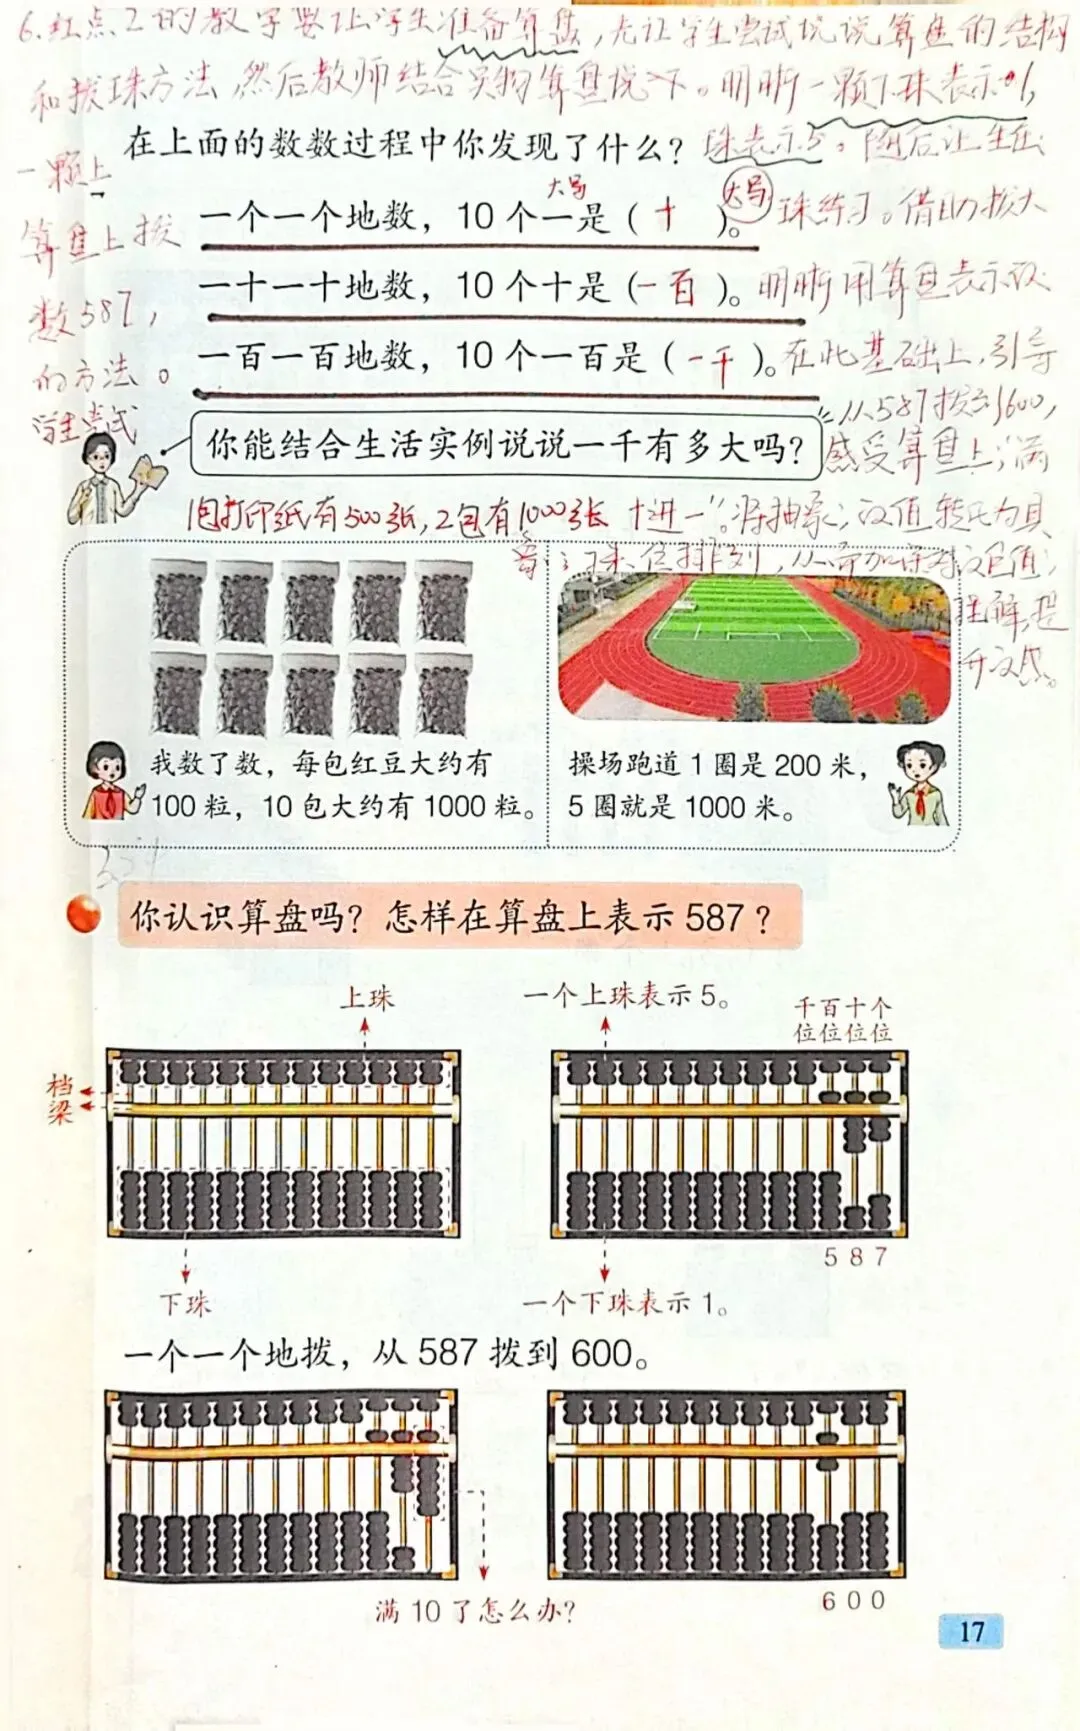 6.红点2的教学要让学生准备算盘,先让学生尝试说说算盘的结构
和拨珠方法,然后教师结合实物算盘说一下。明晰一颗下珠表示1,
一颗上
珠表示5。随后让生在
算盘上拨
珠练习。借助拨大
数587,
明晰用算盘表示数
的方法。
在此基础上,引导
学生尝试
从587拨到600,
感受算盘上"满
十进一"。将抽象的数值转化为具
理解,提
升数感。
在上面的数数过程中你发现了什么?
一个一个地数,10个一是(十)。
大写
大写
一十一十地数,10个十是(一百)。
一百一百地数,10个一百是(一千)。
你能结合生活实例说说一千有多大吗?
1包打印纸有500张,2包有1000张
我数了数,每包红豆大约有
100粒,10包大约有1000粒。
操场跑道1圈是200米,
5圈就是1000米。
你认识算盘吗?怎样在算盘上表示587?
上珠
一个上珠表示5。
千百十个
位位位位
档
梁
587
下珠
一个下珠表示1。
一个一个地拨,从587拨到600。
满10了怎么办?
600
17